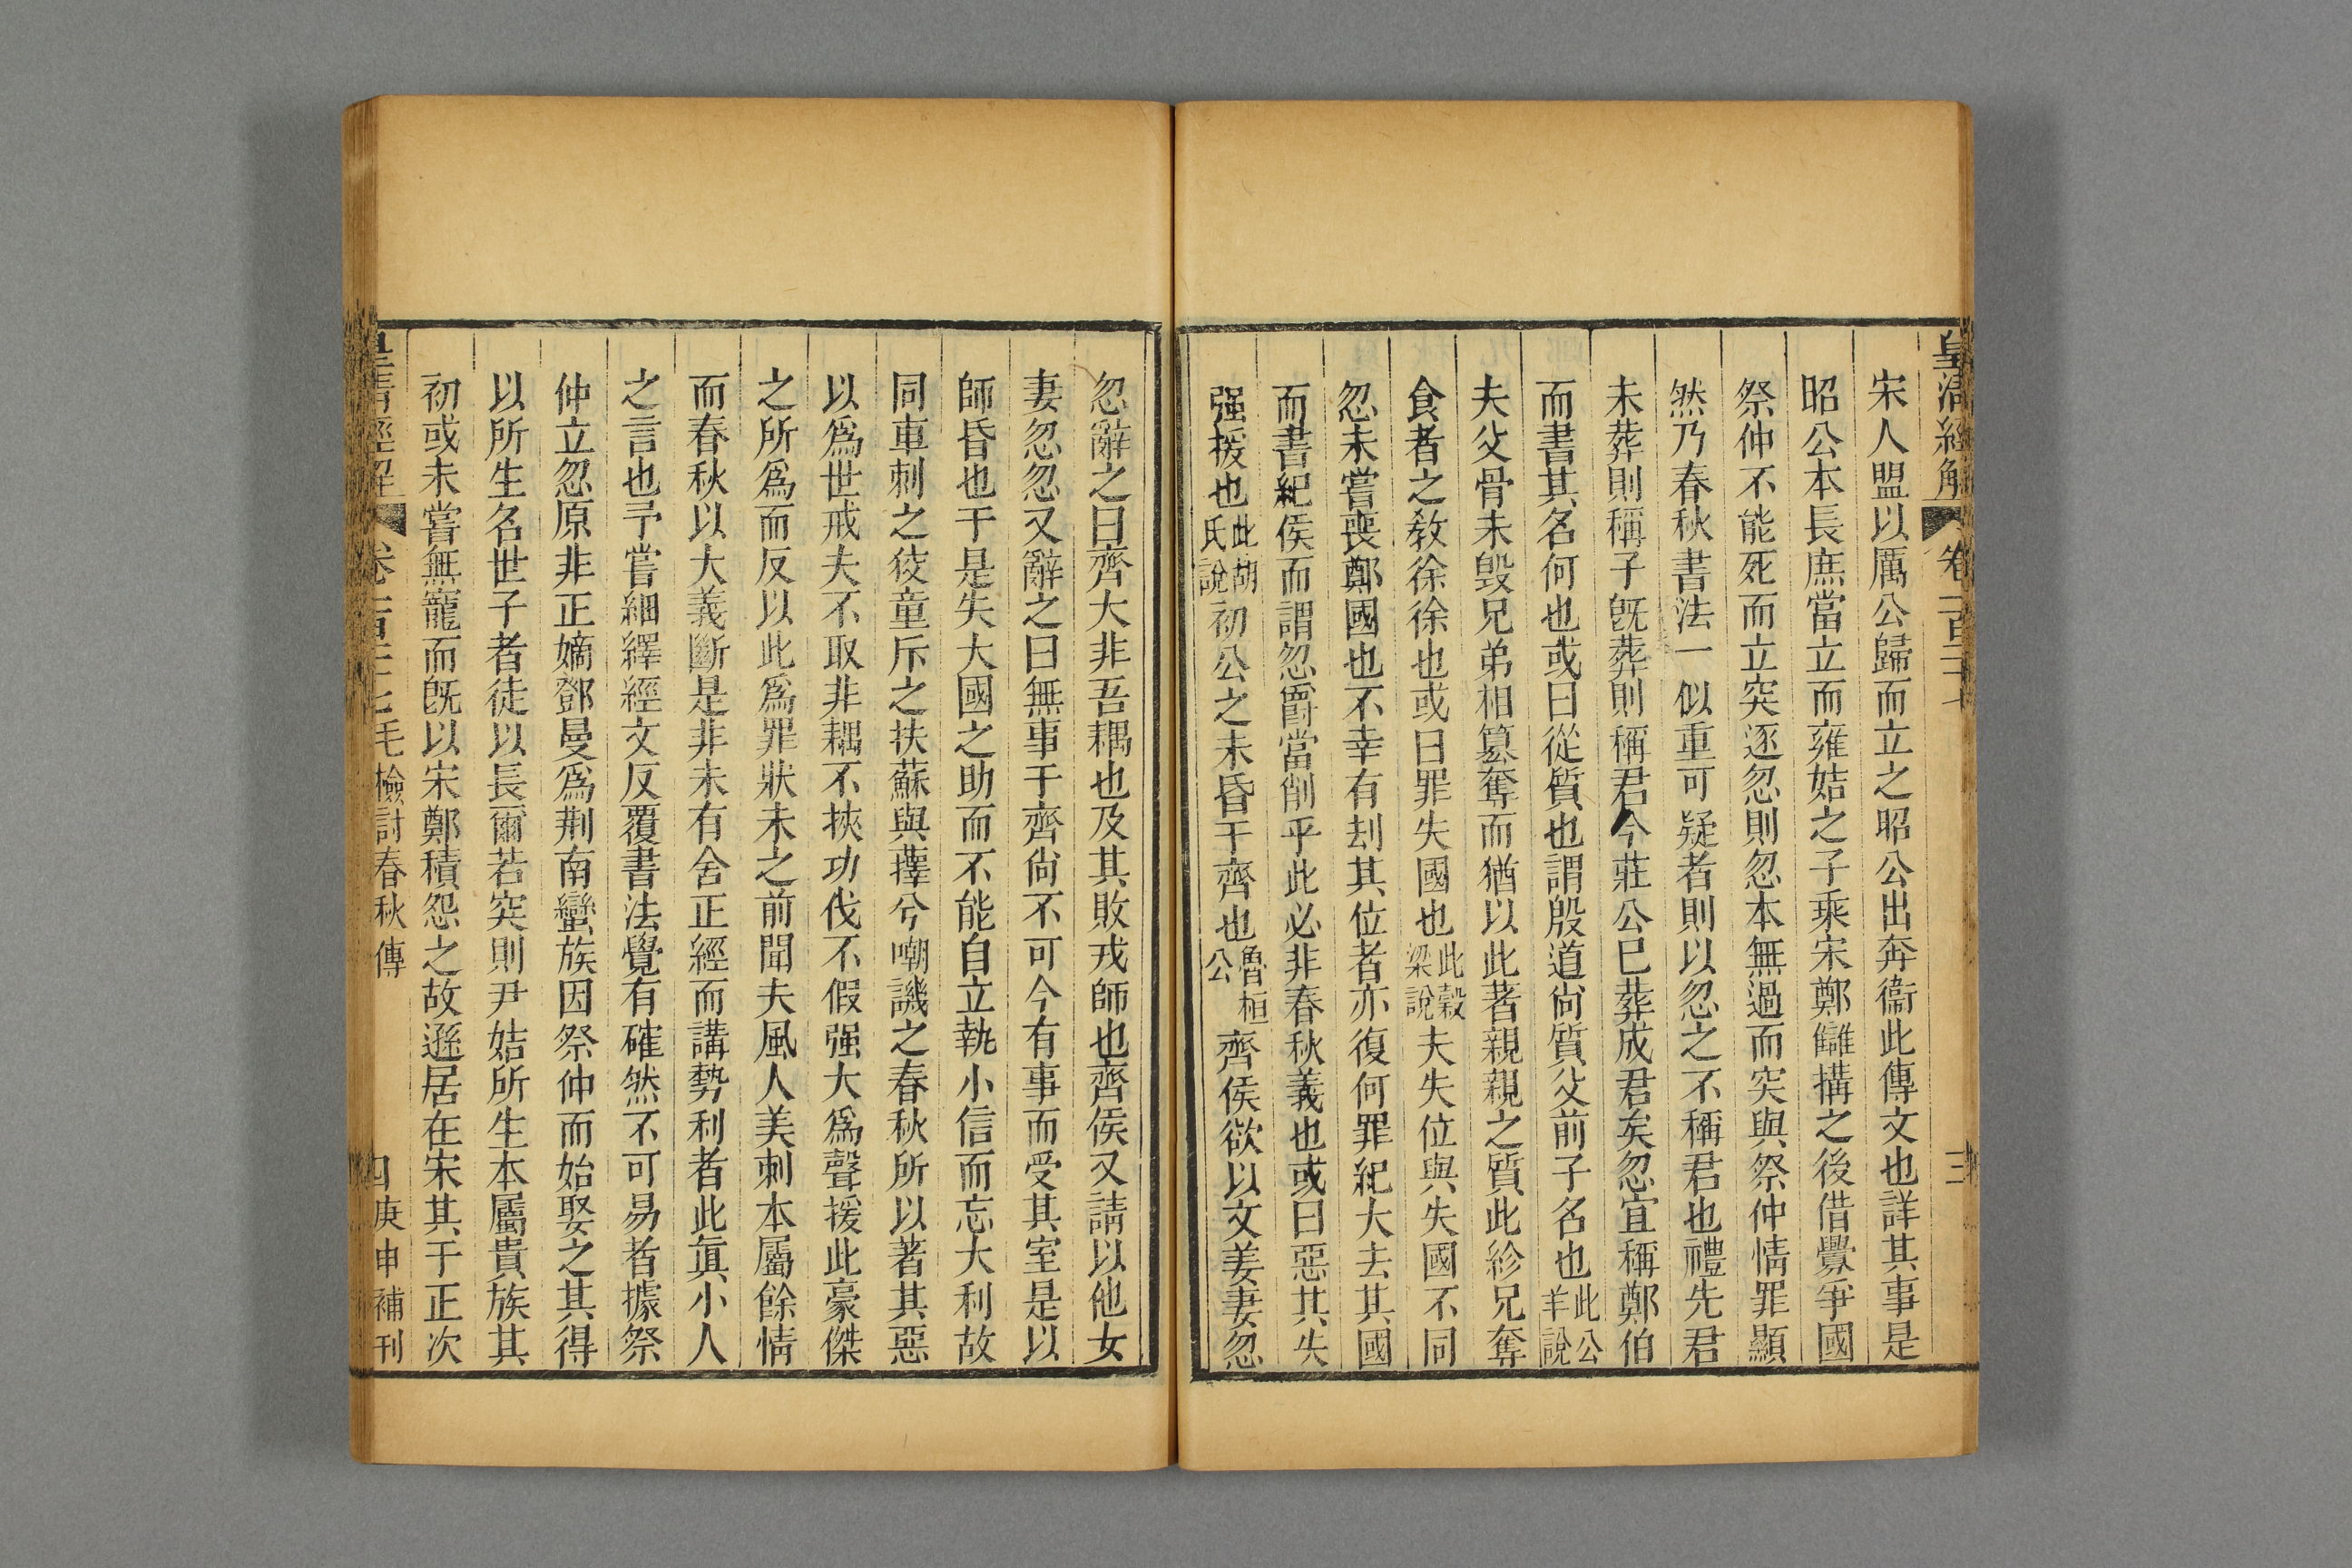 皇清經解 卷一百二十 三
宋人盟以厲公歸而立之昭公出奔衞此傳文也詳其事是
昭公本長庶當立而雍姞之子乘宋鄭讎搆之後借釁爭國
祭仲不能死而立突逐忽則忽本無過而突與祭仲情罪顯
然乃春秋書法一似重可疑者則以忽之不稱君也禮先君
未葬則稱子旣葬則稱君今莊公已葬成君矣忽宜稱鄭伯
而書其名何也或曰從質也謂殷道尙質父前子名也此公羊說
夫父骨未毀兄弟相篡奪而猶以此著親親之質此紾兄奪
食者之敎徐徐也或曰罪失國也此穀梁說夫失位與失國不同
忽未嘗喪鄭國也不幸有刦其位者亦復何罪紀大去其國
而書紀侯而謂忽爵當削乎此必非春秋義也或曰惡其失
强援也此胡氏說初公之未昏于齊也魯桓公齊侯欲以文姜妻忽
忽辭之曰齊大非吾耦也及其敗戎師也齊侯又請以他女
妻忽忽又辭之曰無事于齊尙不可今有事而受其室是以
師昏也于是失大國之助而不能自立執小信而忘大利故
同車刺之狡童斥之扶蘇與蘀兮嘲譏之春秋所以著其惡
以爲世戒夫不取非耦不挾功伐不假强大爲聲援此豪傑
之所爲而反以此爲罪狀未之前聞夫風人美刺本屬餘情
而春秋以大義斷是非未有舍正經而講勢利者此眞小人
之言也予嘗細繹經文反覆書法覺有確然不可易者據祭
仲立忽原非正嫡鄧曼爲荆南蠻族因祭仲而始娶之其得
以所生名世子者徒以長爾若突則尹姞所生本屬貴族其
初或未嘗無寵而旣以宋鄭積怨之故遜居在宋其于正次
皇清經解 卷一百二十七毛檢討春秋傳 四 庚申補刊